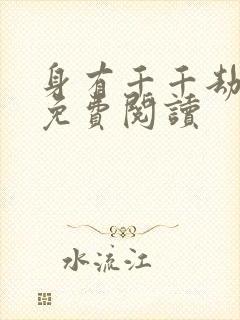 身有千千劫
免費閱讀
水流江